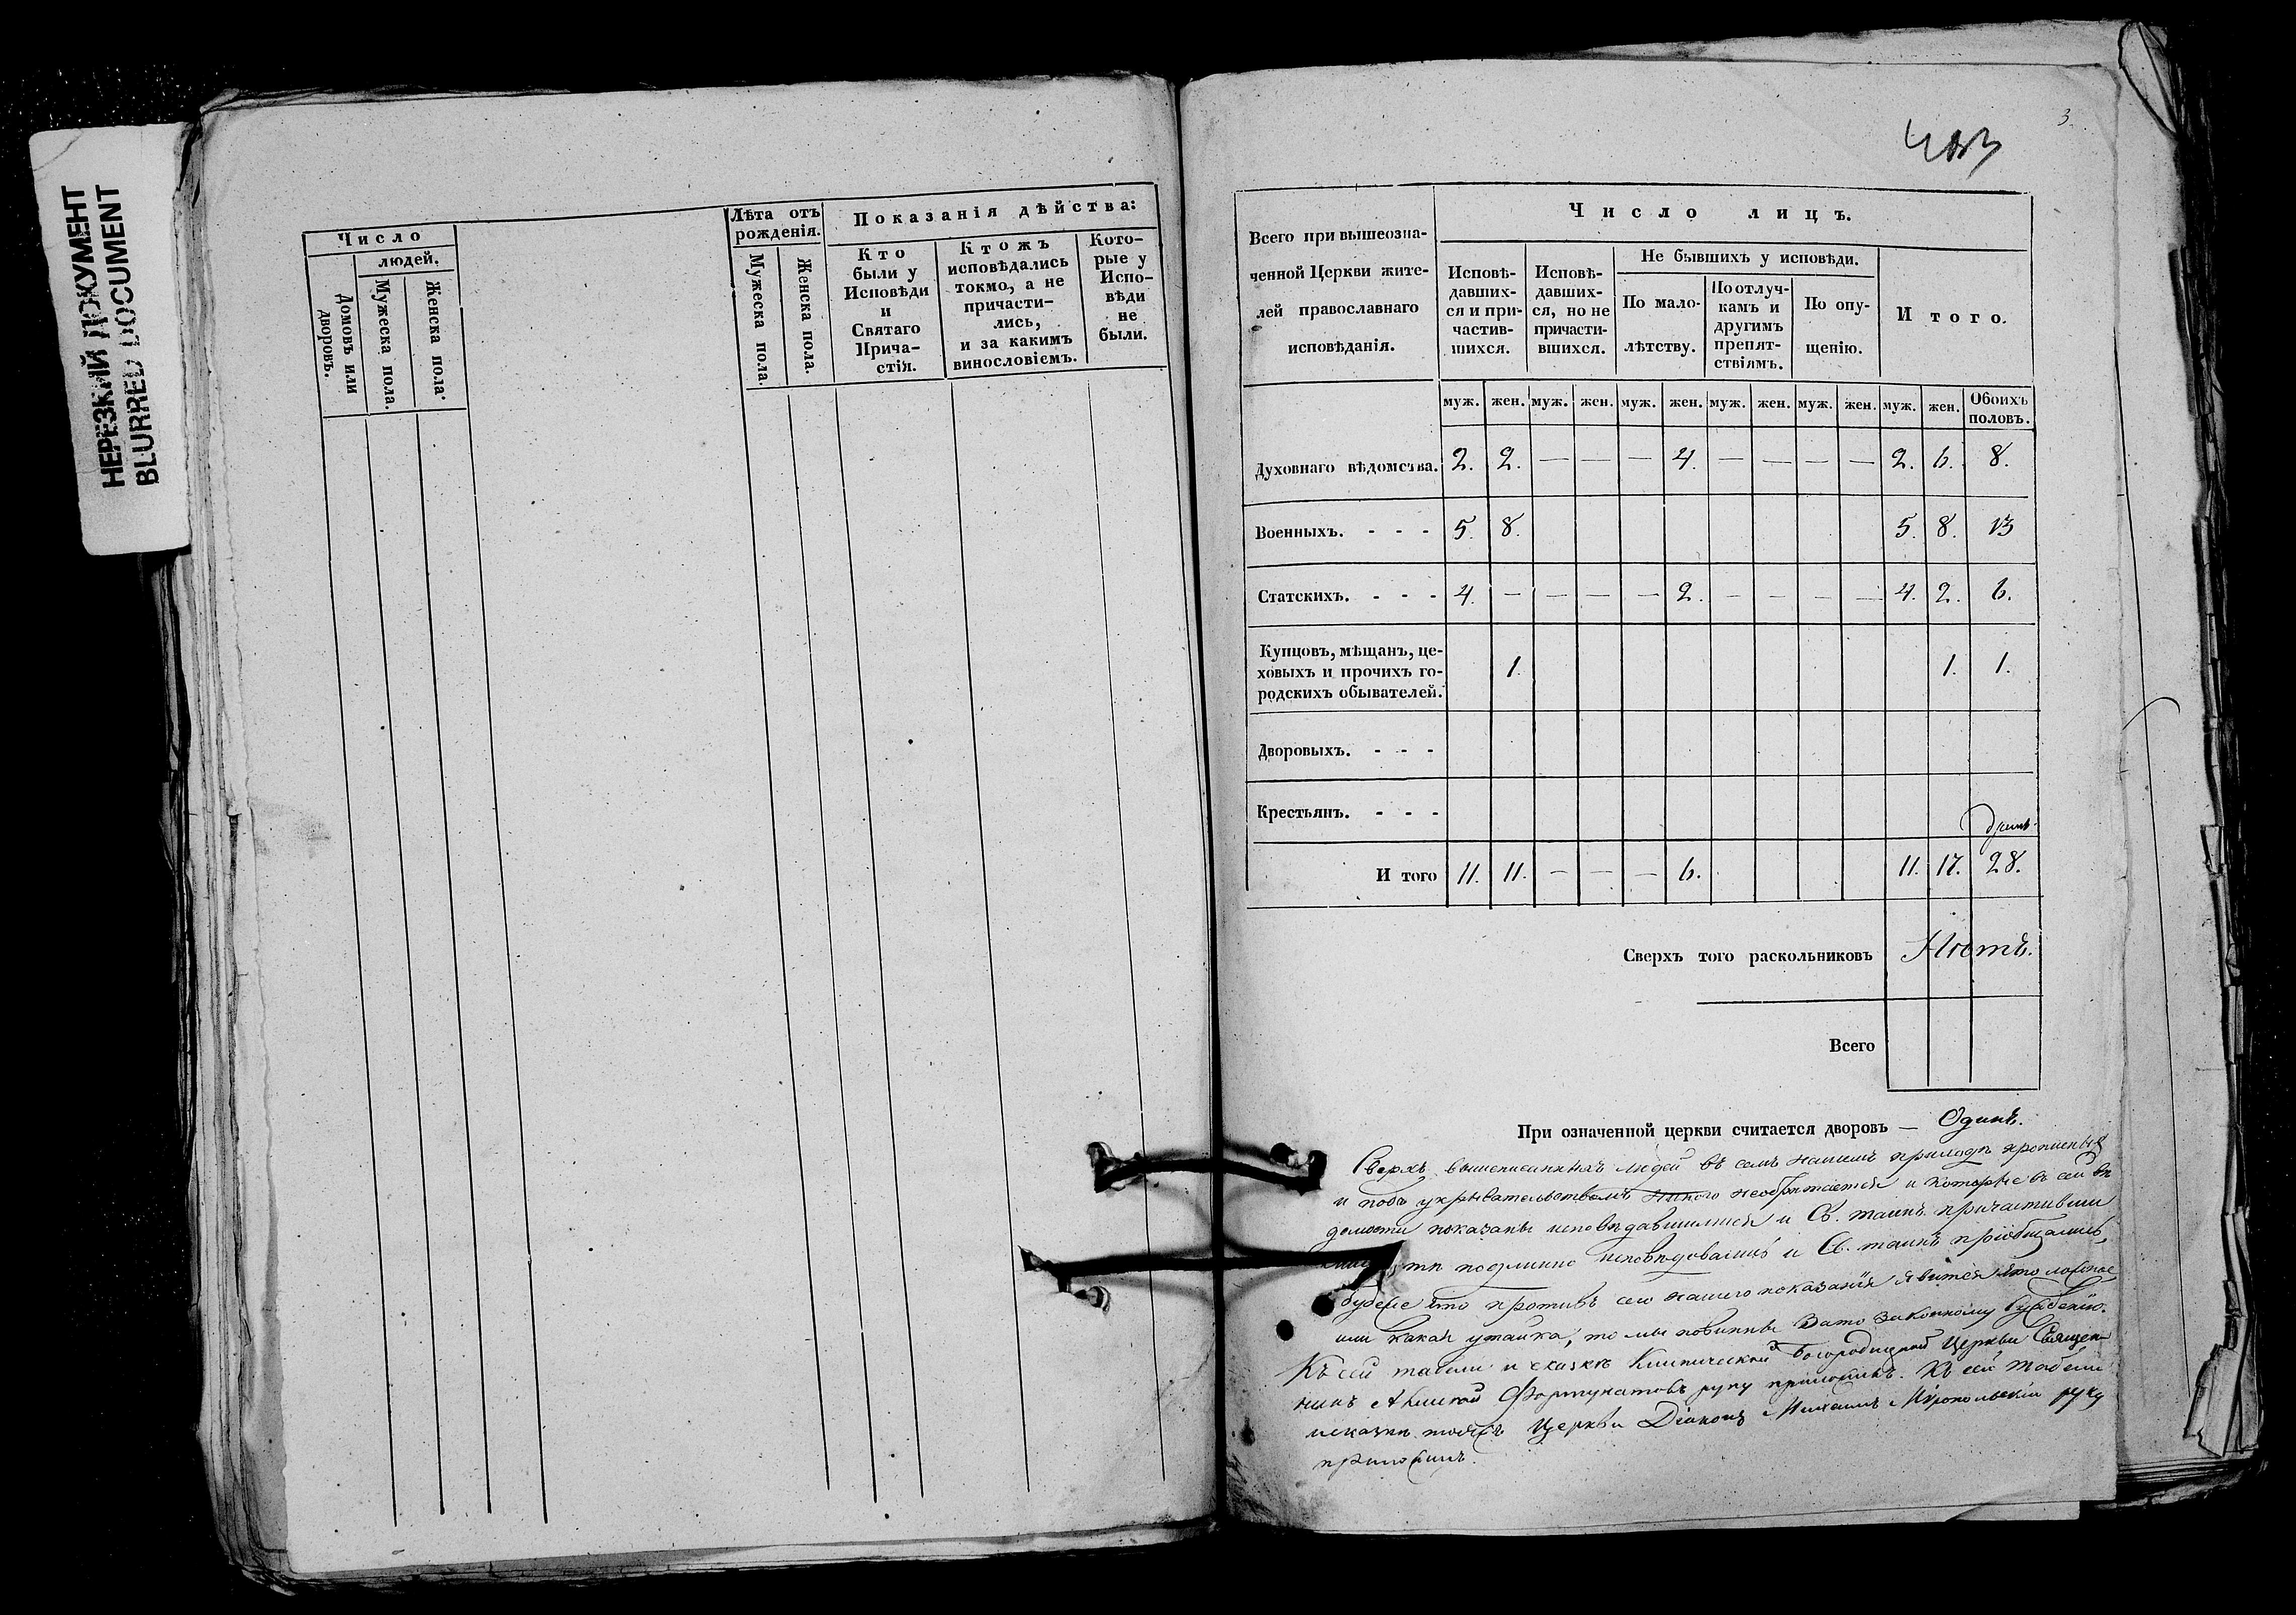 НЕРЕЗКИЙ ДОКУМЕНТ
BLURRED DOCUMENT
Число
людей.
Домовъ или дворовъ.
Мужеска пола.
Женска пола.
Лѣта отъ рожденія.
Мужеска пола.
Женска пола.
Показанія дѣйства:
Кто были у Исповѣди и Святаго Прича-
стія.
Ктожъ исповѣдались токмо, а не причасти-
лись, и за какимъ винословіемъ.
Кото-
рые у Испо-
вѣди не были.
3
Всего при вышеозна-
ченной Церкви жите-
лей православнаго
исповѣданія.
Число лицъ.
Исповѣ-
давших-
ся и при-
частив-
шихся.
Исповѣ-
давших-
ся, но не
причасти-
вшихся.
Не бывшихъ у исповѣди.
По мало-
лѣтству.
По отлуч-
камъ и
другимъ
препят-
ствіямъ.
По опу-
щенію.
Итого.
муж. жен. муж. жен. муж. жен. муж. жен. муж. жен. муж. жен. Обоихъ половъ.
Духовнаго вѣдомства. 2. 2. — — — 4. — — — — 2. 6. 8.
Военныхъ. - - - 5. 8. 5. 8. 13
Статскихъ. - - - 4. — — — — 2. — — — — 4. 2. 6.
Купцовъ, мѣщанъ, це-
ховыхъ и прочихъ го-
родскихъ обывателей. 1. 1. 1.
Дворовыхъ. - - -
Крестьянъ. - - -
И того 11. 11. — — — 6. 11. 17. 28.
Сверхъ того раскольниковъ Нѣтъ.
Всего
При означенной церкви считается дворовъ — Одинъ.
Сверхъ вышеписанныхъ людей въ семъ нашемъ приходѣ
и подъ укрывательствомъ никого необрѣтается и которые въ сей вѣ
домости показаны исповѣдавшимися и Св. таинъ причастивши
тѣ подлинно исповѣдовались и Св. таинъ пріобщались,
будеже что противъ сего нашего показанія явится что ложное
или какая утайка, то мы повинны за то законному сужденію.
Къ сей табели и сказкѣ Клинической Богородицкой Церкви Священ
никъ Алексѣй Фортунатовъ руку приложилъ. Къ сей табели
и сказкѣ тояжъ Церкви Діаконъ Михаилъ руку
приложилъ.